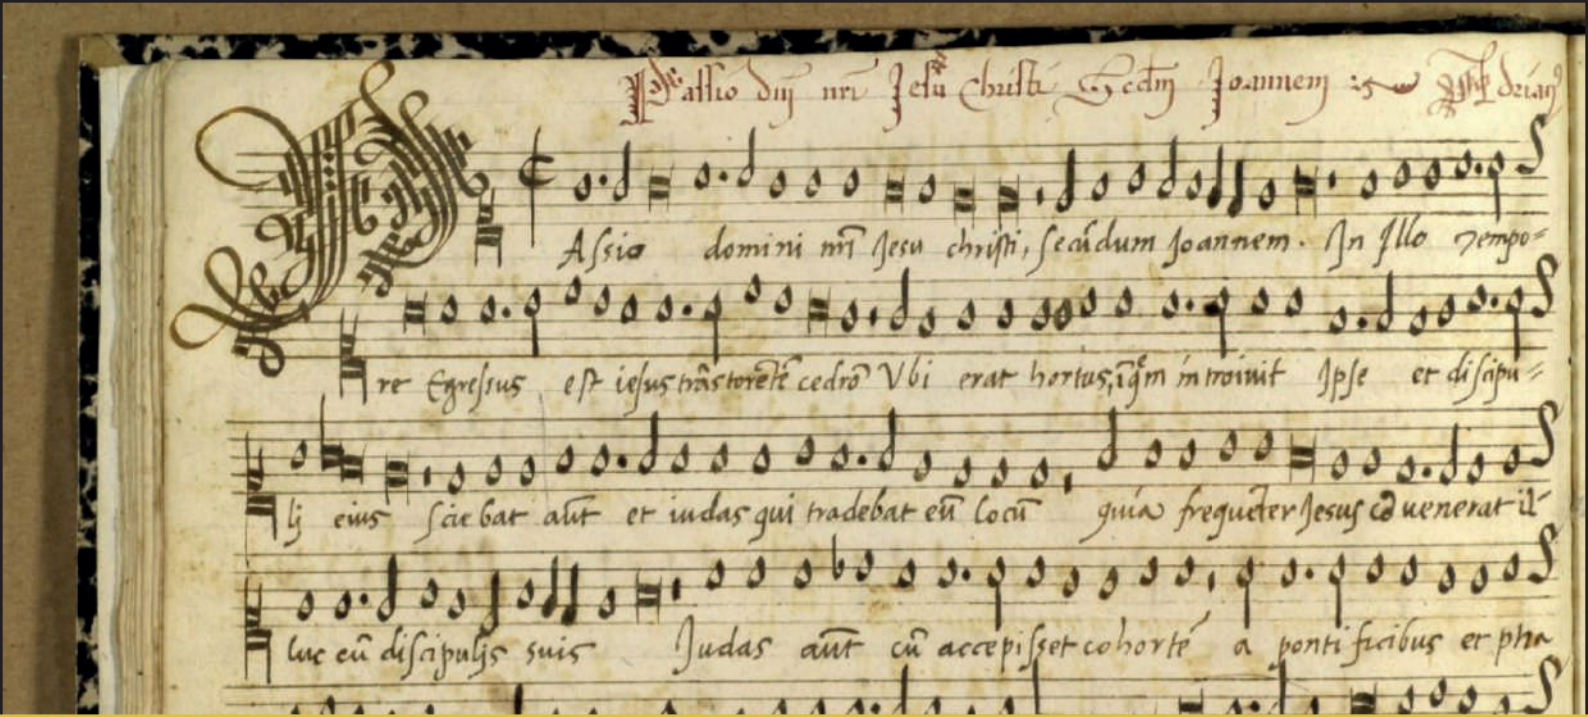 Passio dnj nrj Jesu Christi Secdm Joannem
Assio domini nrj Jesu christi, secūdum Joannem. In Illo Tempo=
re Egressus est iesus trās torētē cedrō Vbi erat hortus, ī quem introiuit Ipse et discipu=
lj eius sciebat aūt et iudas qui tradebat eū locū quia frequēter Jesus cōuenerat il=
luc cū discipuljs suis Judas aūt cū accepisset cohortē a pontificibus et pha